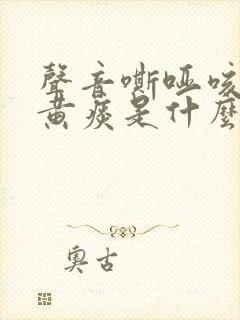 聲音嘶啞咳
黃痰是什麼
奧古